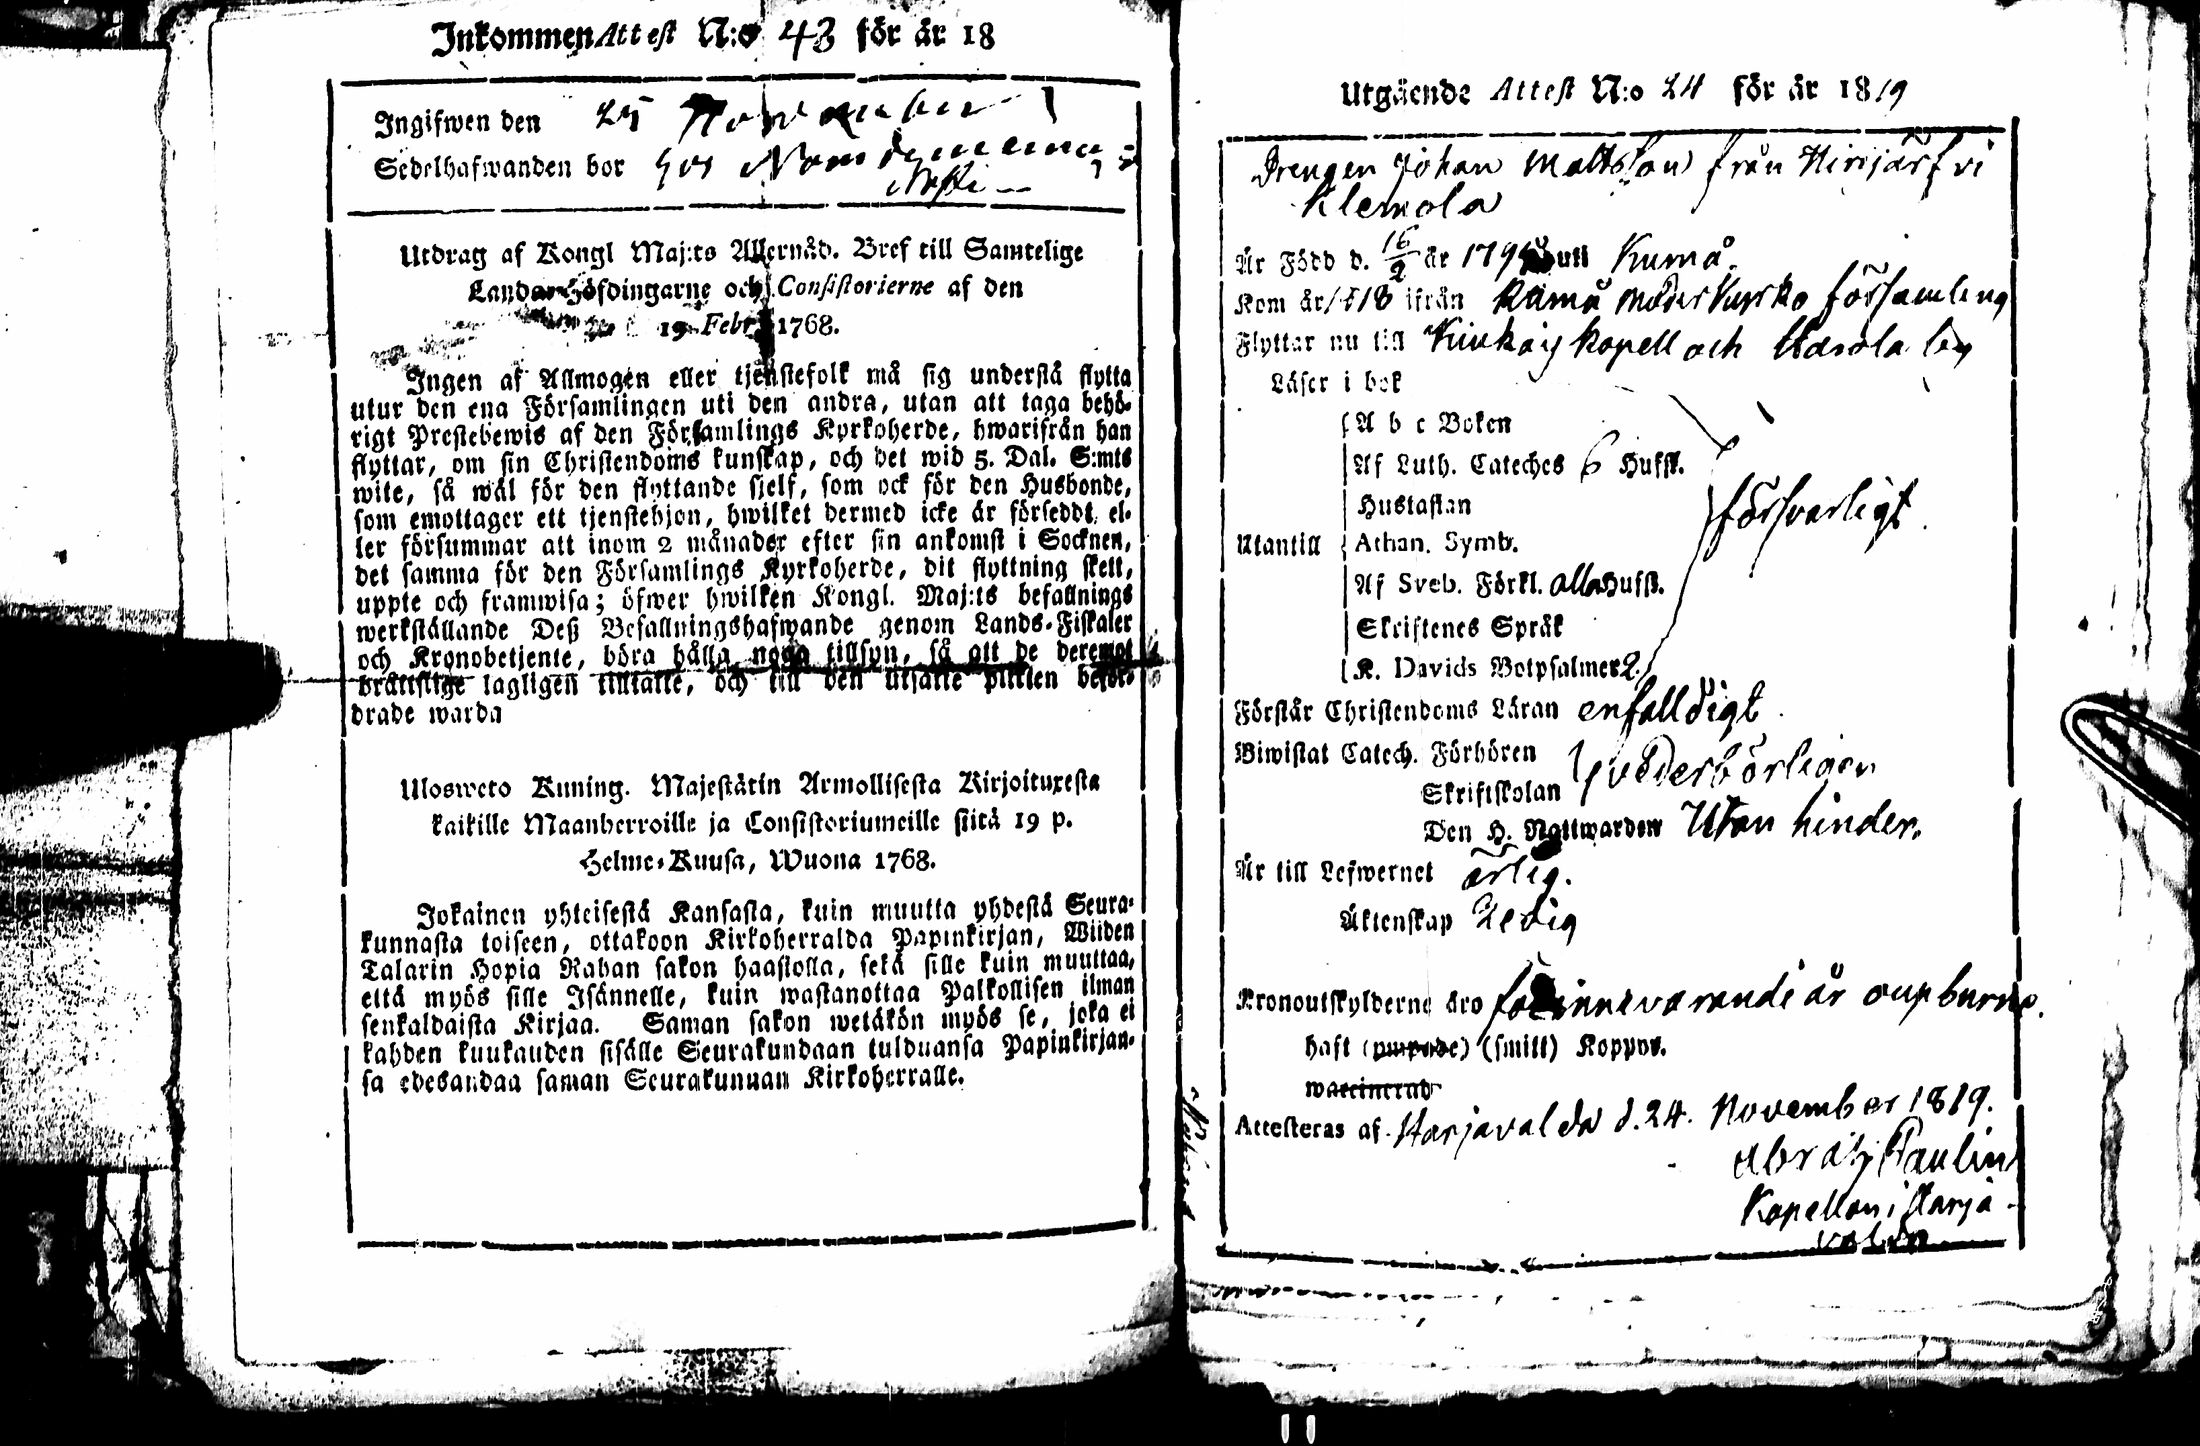 Inkommen Attest N:o 43 för år 18
Ingifwen den 25 November
Sedelhafwanden bor hos
Utdrag af Kongl Maj:ts Allernåd. Bref till Samtelige
Lands-Höfdingarne och Consistorierne af den
19 Febr. 1768.
Ingen af Allmogen eller tjenstefolk må sig understå flytta
utur den ena Församlingen uti den andra, utan att taga behö-
rigt Prestebewis af den Församlings Kyrkoherde, hwarifrån han
flyttar, om sin Christendoms kunskap, och det wid 5. Dal. S:mts
wite, så wäl för den flyttande sjelf, som ock för den Husbonde,
som emottager ett tjenstehjon, hwilket dermed icke är förseddt, el-
ler försummar att inom 2 månader efter sin ankomst i Socknen,
det samma för den Församlings Kyrkoherde, dit flyttning skett,
uppte och framwisa; öfwer hwilken Kongl. Maj:ts befallnings
werkställande Deß Befallningshafwande genom Lands-Fiskaler
och Kronobetjente, böra hålla noga tillsyn, så att de deremot
brättslige lagligen tilltalte, och till den utsatte plikten beför-
drade warda
Ulosweto Kuning. Majestätin Armollisesta Kirjoituxesta
kaikille Maanherroille ja Consistoriumeille siitä 19 p.
Helme-Kuusa, Wuona 1768.
Jokainen yhteisestä Kansasta, kuin muutta yhdestä Seura-
kunnasta toiseen, ottakoon Kirkoherralda Papinkirjan, Wiiden
Talarin Hopia Rahan sakon haastolla, sekä sille kuin muuttaa,
että myös sille Isännelle, kuin wastanottaa Palkollisen ilman
senkaldaista Kirjaa. Saman sakon wetäkön myös se, joka ei
kahden kuukauden sisälle Seurakundaan tulduansa Papinkirjan-
sa edesandaa saman Seurakunnan Kirkoherralle.
Utgående Attest N:o 24 för år 1819
Drengen Johan Mattsson från Hirvjärfvi
Klemola
Är Född d. 16/2 år 179 uti Kumå.
Kom år 1818 ifrån Kumå moderkyrko församling
Flyttar nu till Kiukais kapell och
Läser i bok
A b c Boken
Af Luth. Cateches 6 Hufst.
Hustaflan
försvarligt
Utantill Athan. Symb.
Af Sveb. Förkl. alla Hufst.
Skriftenes Språk
K. Davids Botpsalmer 2.
Förstår Christendoms Läran enfalldigt
Biwistat Catech. Förhören
Skriftskolan vederbörligen
Den H. Nattwarden Utan hinder.
Är till Lefwernet ärlig.
Äktenskap Ledig
Kronoutskylderne äro för innevarande år oupburne.
haft (ympade) (smitt) Koppor.
waccinerad
Attesteras af Harjavalda d. 24. November 1819.
Abrah. Paulin
Kapellan i Harja-
valda